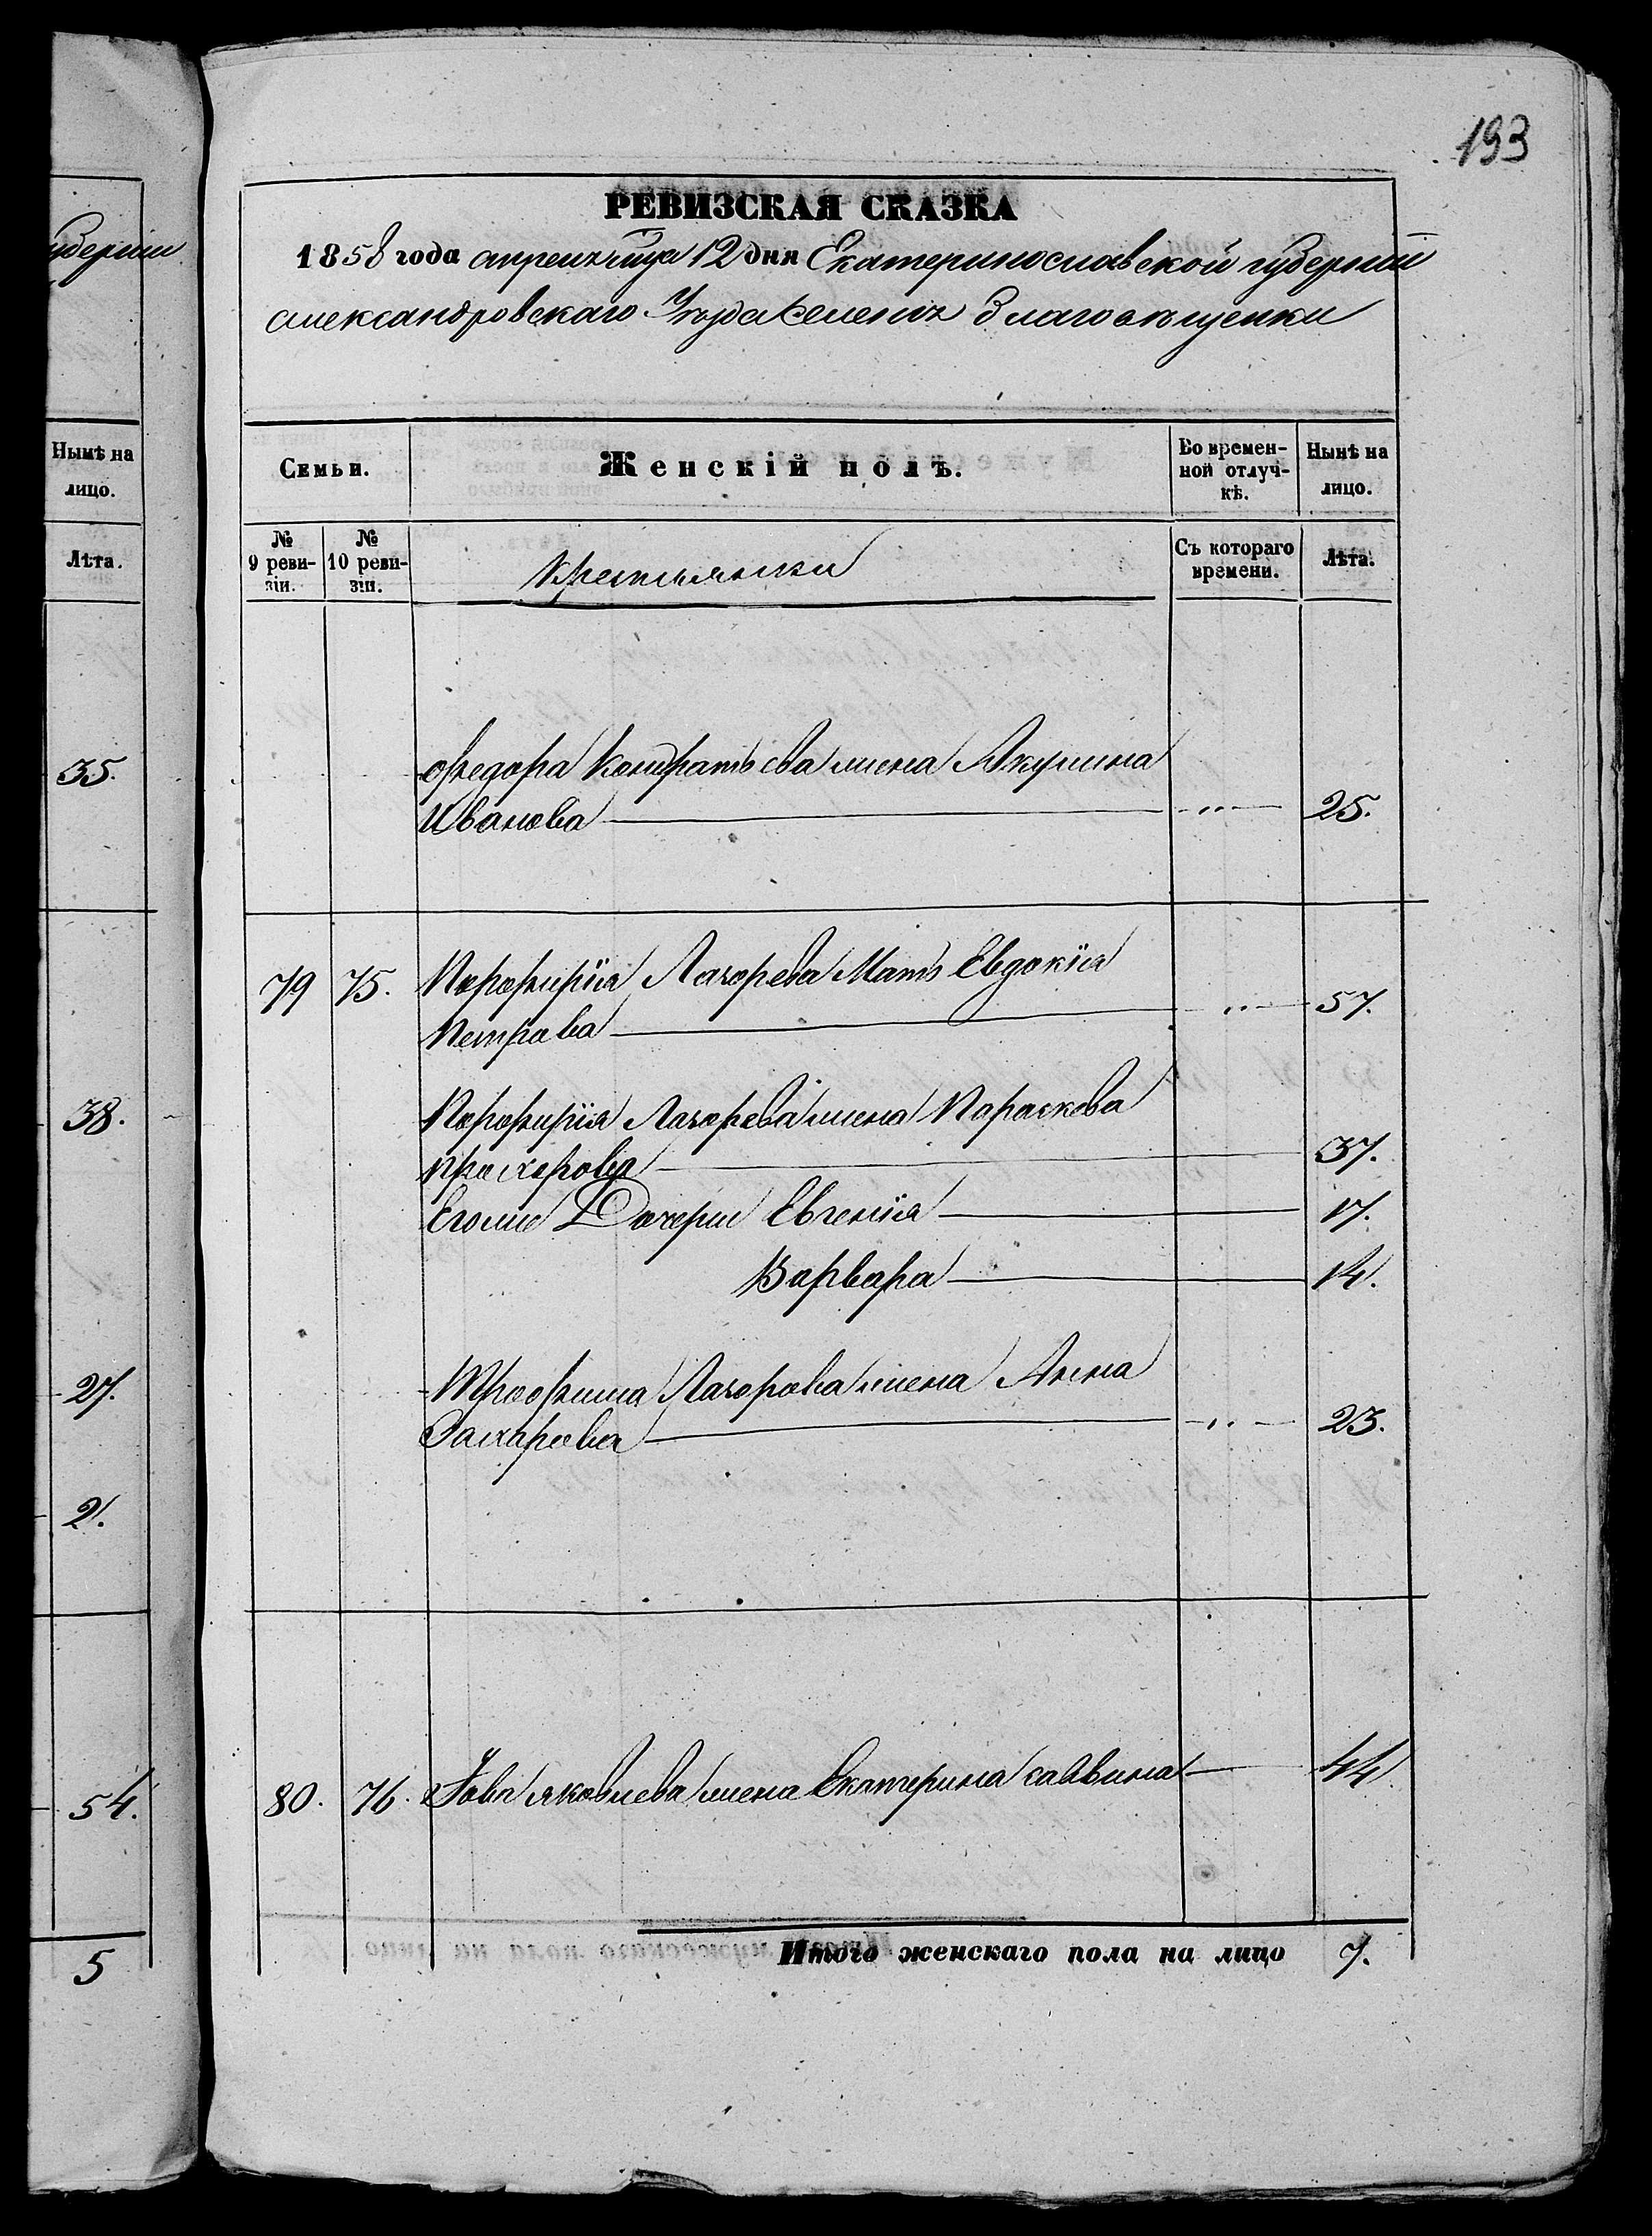 уберніи
Нынѣ на
лицо.
Лѣта.
35.
38.
27.
2.
54.
5
193
РЕВИЗСКАЯ СКАЗКА
1858 года апреля мца 12 дня Екатеринославской губерніи
александровскаго Уезда Селенія Благовещенки
Семьи.
Женскій полъ.
Во времен-
ной отлуч-
кѣ.
Нынѣ на
лицо.
№
9 реви-
зіи.
№
10 реви-
зіи.
крестьянки
Съ котораго
времени.
Лѣта.
Ѳедора Кондратьева жена Акулина
Иванова 25.
79 75. Порфирія Лазорева Мать Евдокія
Петрова 57.
Порфирія Лазорева жена Параскева
прохорова 37.
Его же Дочери Евгенія 17.
Варвара 14.
Трофима Лазорева жена Анна
Захарова 23.
80. 76. Іова яковлева жена Екатерина саввина 44.
Итого женскаго пола на лицо 7.